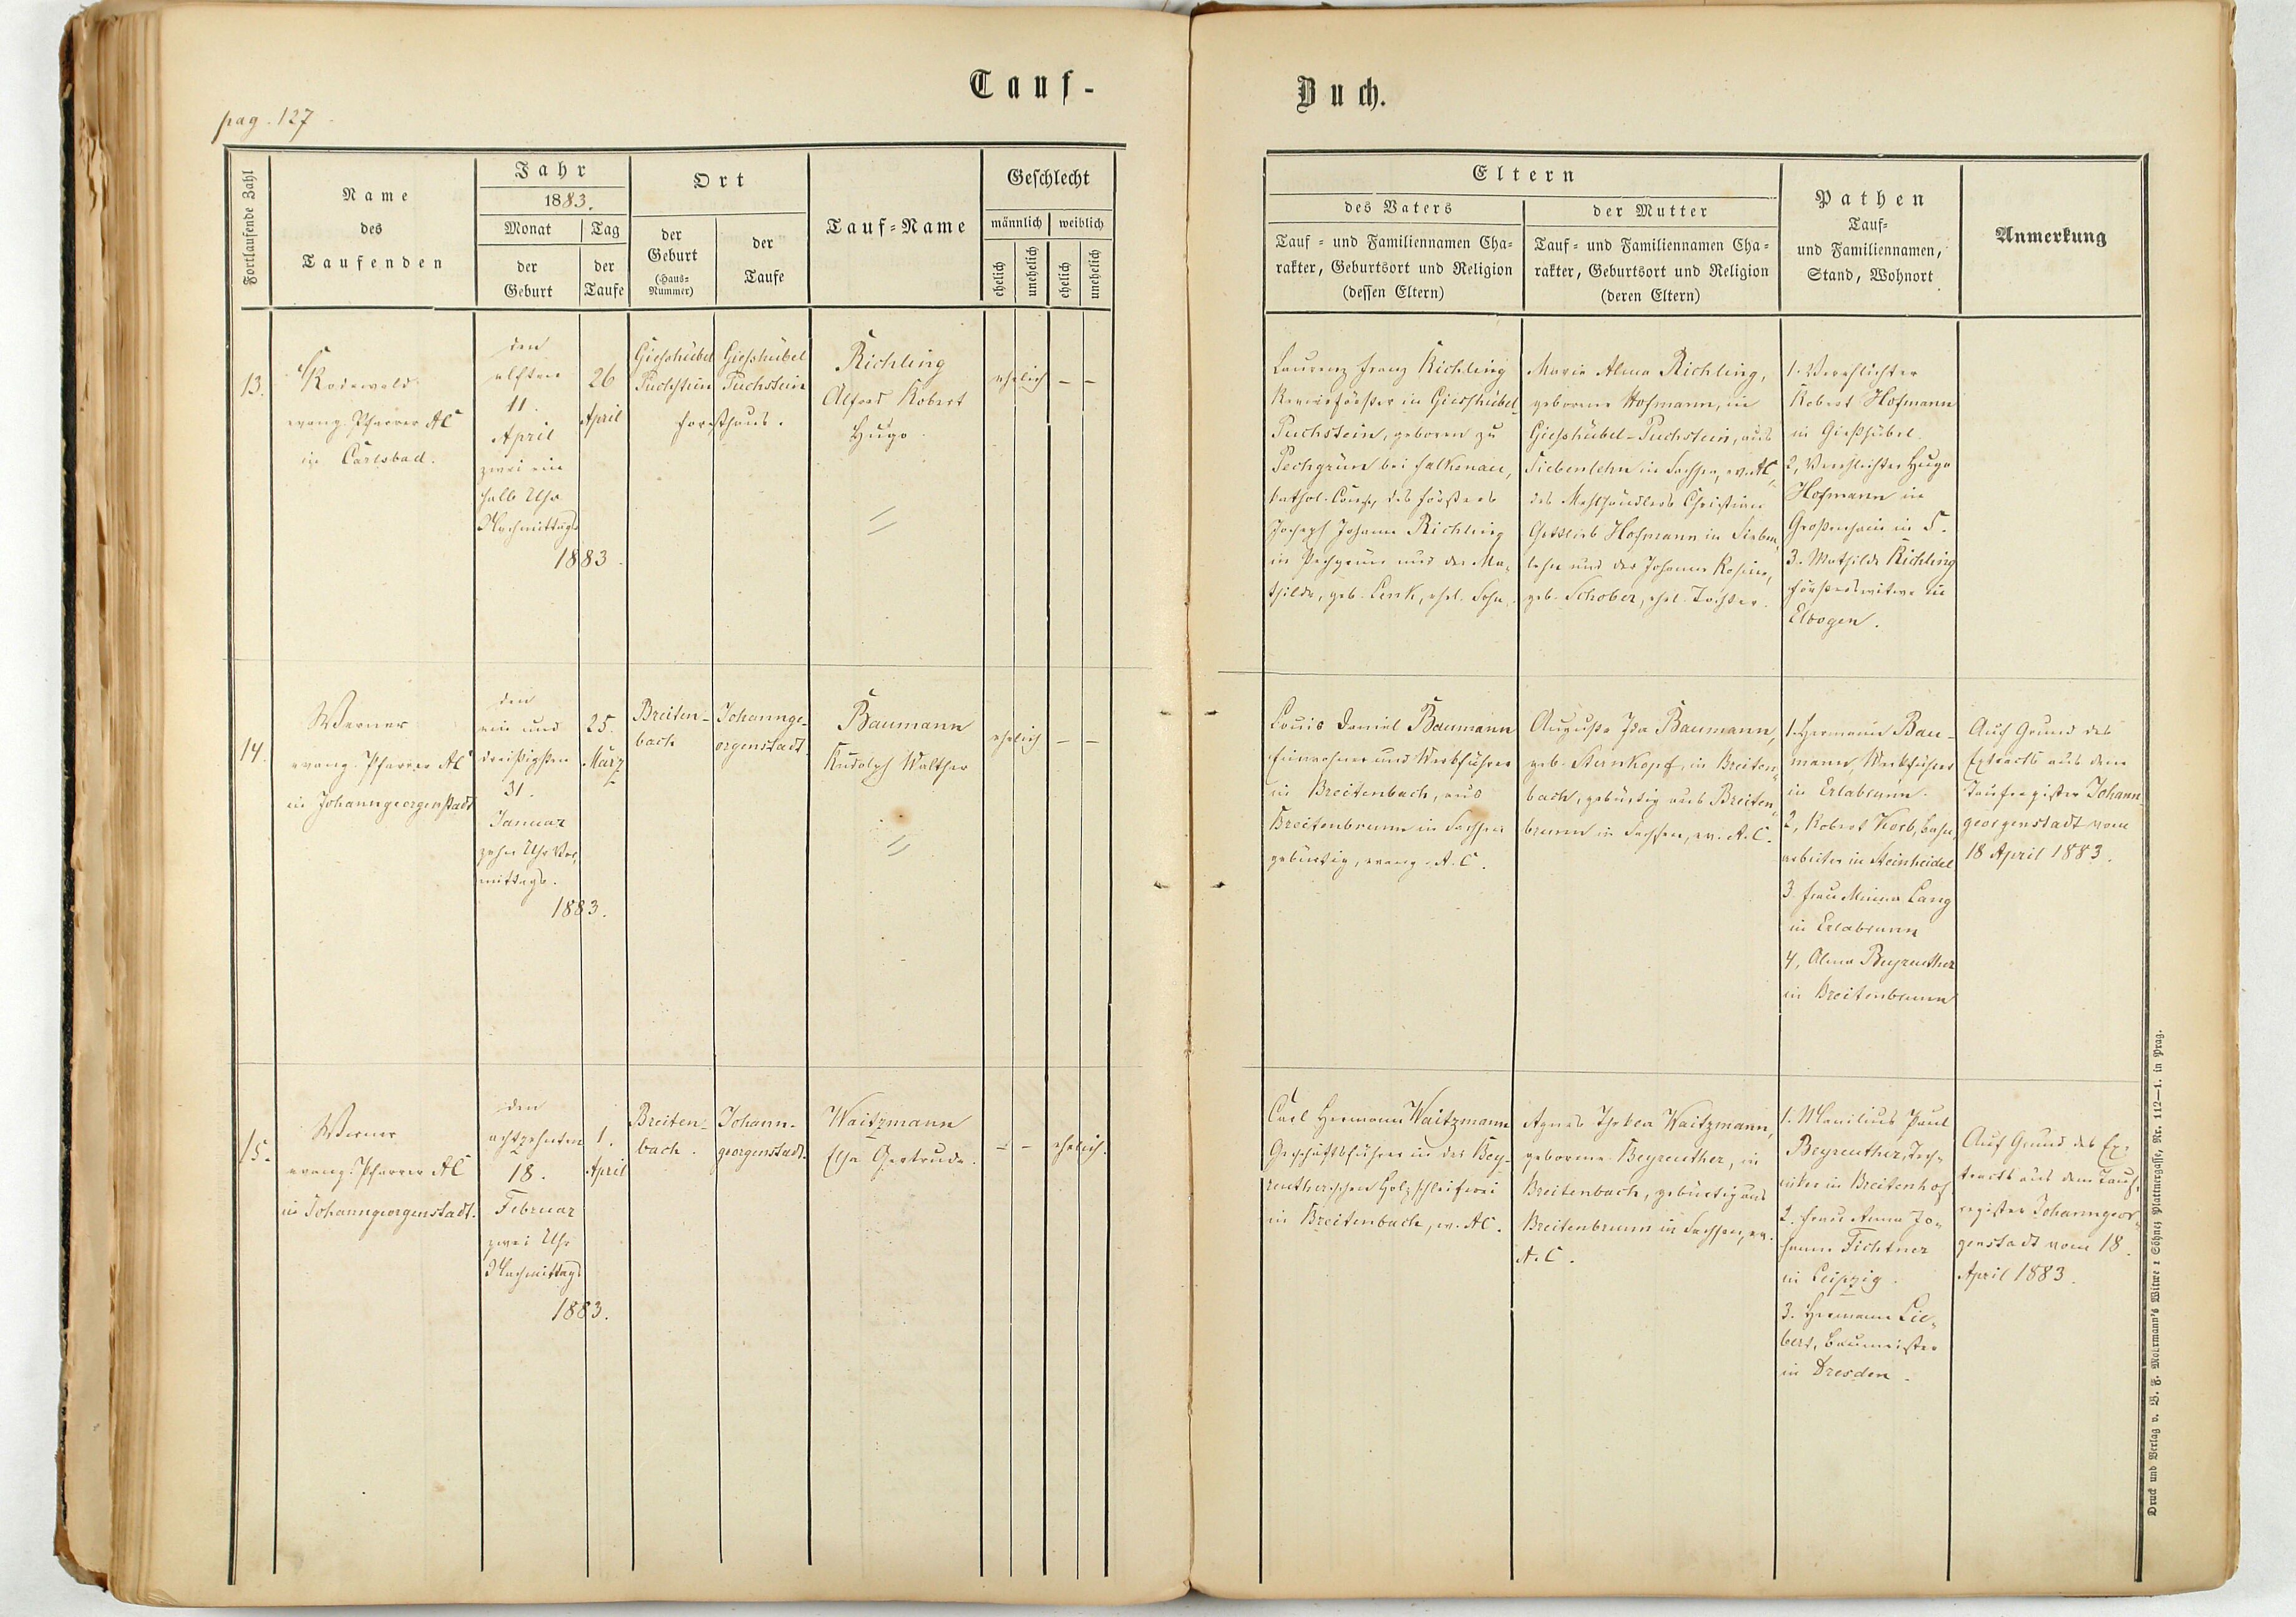 Tauf-
Buch.
pag. 127
Fortlaufende Zahl
Name
des
Taufenden
Jahr
1883.
Monat
der
Geburt
Tag
der
Taufe
Ort
der
Geburt
(Haus-
Nummer)
der
Taufe
Tauf-Name
Geschlecht
männlich
weiblich
ehelich
unehelich
ehelich
unehelich
Eltern
des Vaters
Tauf- und Familiennamen Cha-
rakter, Geburtsort und Religion
(dessen Eltern)
der Mutter
Tauf- und Familiennamen Cha-
rakter, Geburtsort und Religion
(deren Eltern)
Pathen
Tauf-
und Familiennamen,
Stand, Wohnort
Anmerkung
13.
Rodewald
evang. Pfarrer AC
in Carlsbad.
den
elften
11.
April
zwei ein
halb Uhr
Nachmittags
1883.
26
April
Gieshübel
Puchstein
Gieshübel
Puchstein
Forsthaus.
Richling
Alfred Robert
Hugo
ehelich
– –
Laurenz Franz Richling
Revierförster in Gieshübel-
Puchstein, geboren zu
Pechgrün bei Falkenau,
kathol. Conf., des Försters
Joseph Johann Richling
in Pechgrün und der Ma-
thilde, geb. Lenk, ehel. Sohn.
Maria Alma Richling,
geborene Hofmann, in
Gieshübel-Puchstein, aus
Siebenlehn in Sachsen, ev. AC,
des Mehlhändlers Christian
Gottlieb Hofmann in Sieben-
lehn und der Johanne Rosine,
geb. Schober, ehel. Tochter.
1.
Robert Hofmann
in Gießhübel.
2, Hugo
Hofmann in
Großenhain in S.
3. Mathilde Richling
Försterswitwe in
Elbogen.
14.
Werner
evang. Pfarrer AC
in Johanngeorgenstadt
den
ein und
dreißigsten
31.
Januar
zehn Uhr Vor-
mittags.
1883.
25.
März
Breiten-
bach
Johannge-
orgenstadt.
Baumann
Rudolph Walther
ehelich
– –
Louis Daniel Baumann
Einwohner und Werkführer
in Breitenbach, aus
Breitenbrunn in Sachsen
gebürtig, evang. A.C.
Auguste Ida Baumann,
geb. Sternkopf, in Breiten-
bach, gebürtig aus Breiten-
brunn in Sachsen, ev. A.C.
1. Hermann Bau-
mann, Werkführer
in Erlabrunn.
2, Robert Korb, Bahn-
arbeiter in Steinheidel
3. Frau Minna Lang
in Erlabrunn
4, Alma Beyreuther
in Breitenbrunn
Auf Grund des
Extracts aus dem
Taufregister Johann-
georgenstadt vom
18 April 1883.
15.
Werner
evang. Pfarrer AC
in Johanngeorgenstadt.
den
achtzehnten
18.
Februar
zwei Uhr
Nachmittags
1883.
1.
April
Breiten-
bach.
Johann-
georgenstadt.
Waitzmann
Elsa Gertrude.
– –
ehelich.
Carl Hermann Waitzmann
Geschäftsführer in der Bey-
reutherschen Holzschleiferei
in Breitenbach, ev. AC.
Agnes Thekla Waitzmann,
geborene Beyreuther, in
Breitenbach, gebürtig aus
Breitenbrunn in Sachsen, ev.
A.C.
1. Manilius Paul
Beyreuther, Tech-
niker in Breitenhof
2. Frau Anna Jo-
hanne Fichtner
in Leipzig.
3. Hermann Lie-
bert, Baumeister
in Dresden.
Auf Grund des Ex-
tracts aus dem Tauf-
register Johanngeor-
genstadt vom 18.
April 1883.
Druck und Verlag v. B. F. Moermann's Witwe & Söhne, Plattnergasse, Nr. 112—1. in Prag.